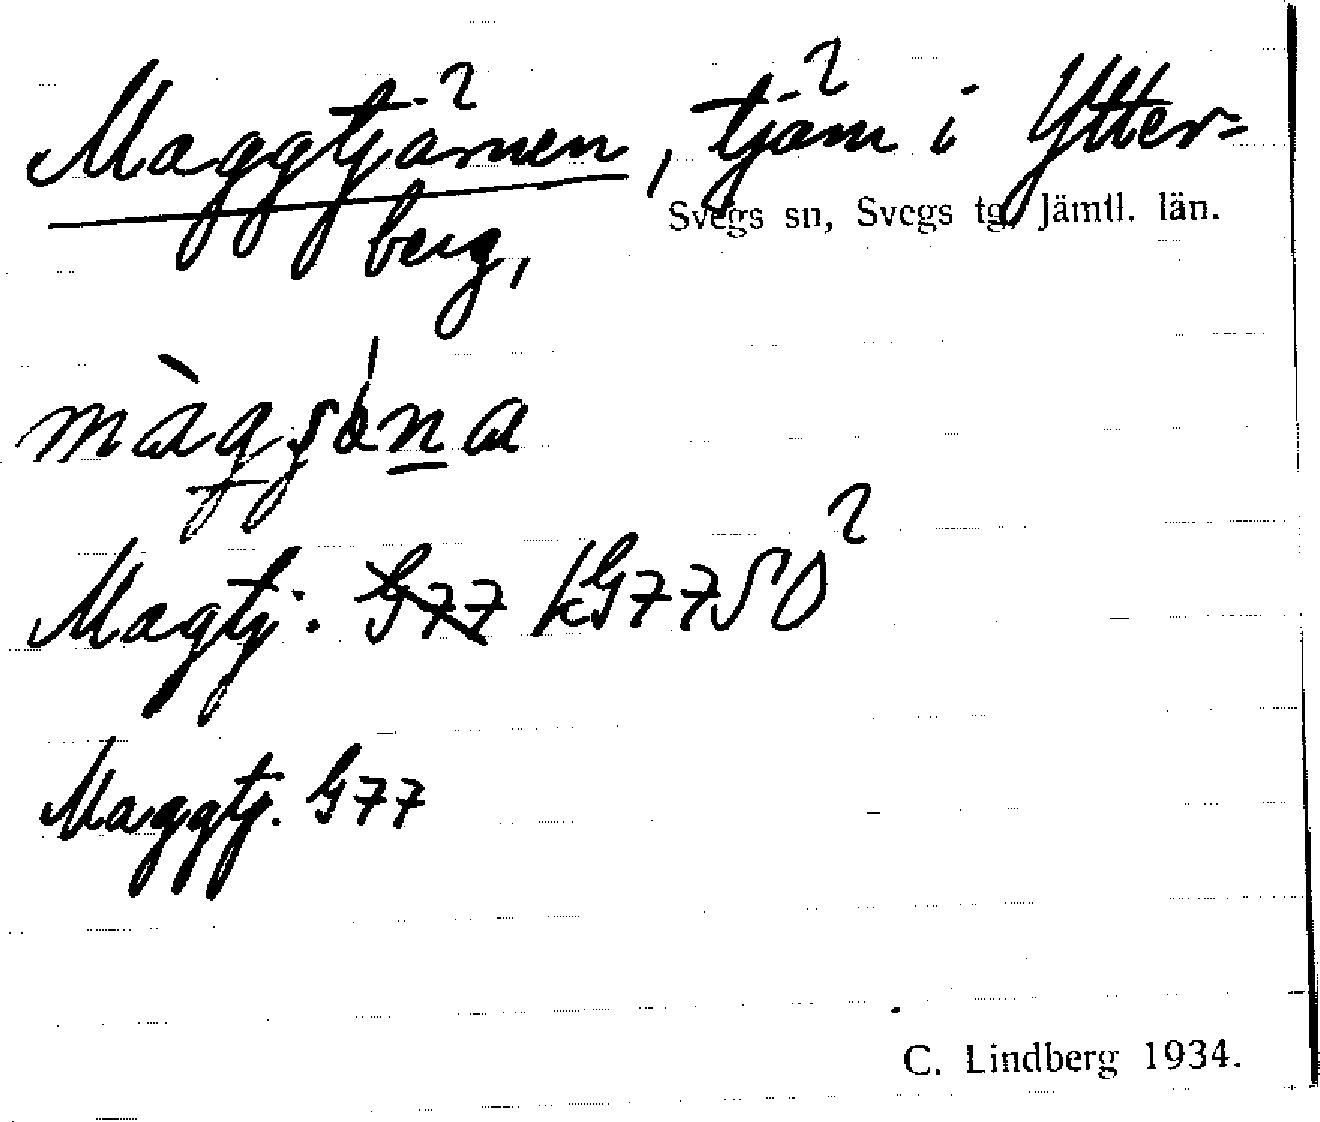 Maggtjärnen, tjärn i Ytter-
Svegs sn, Svegs tg, Jämtl. län.
berg,
Magtj. G77 kG77SO
Maggtj. G77
C. Lindberg 1934.